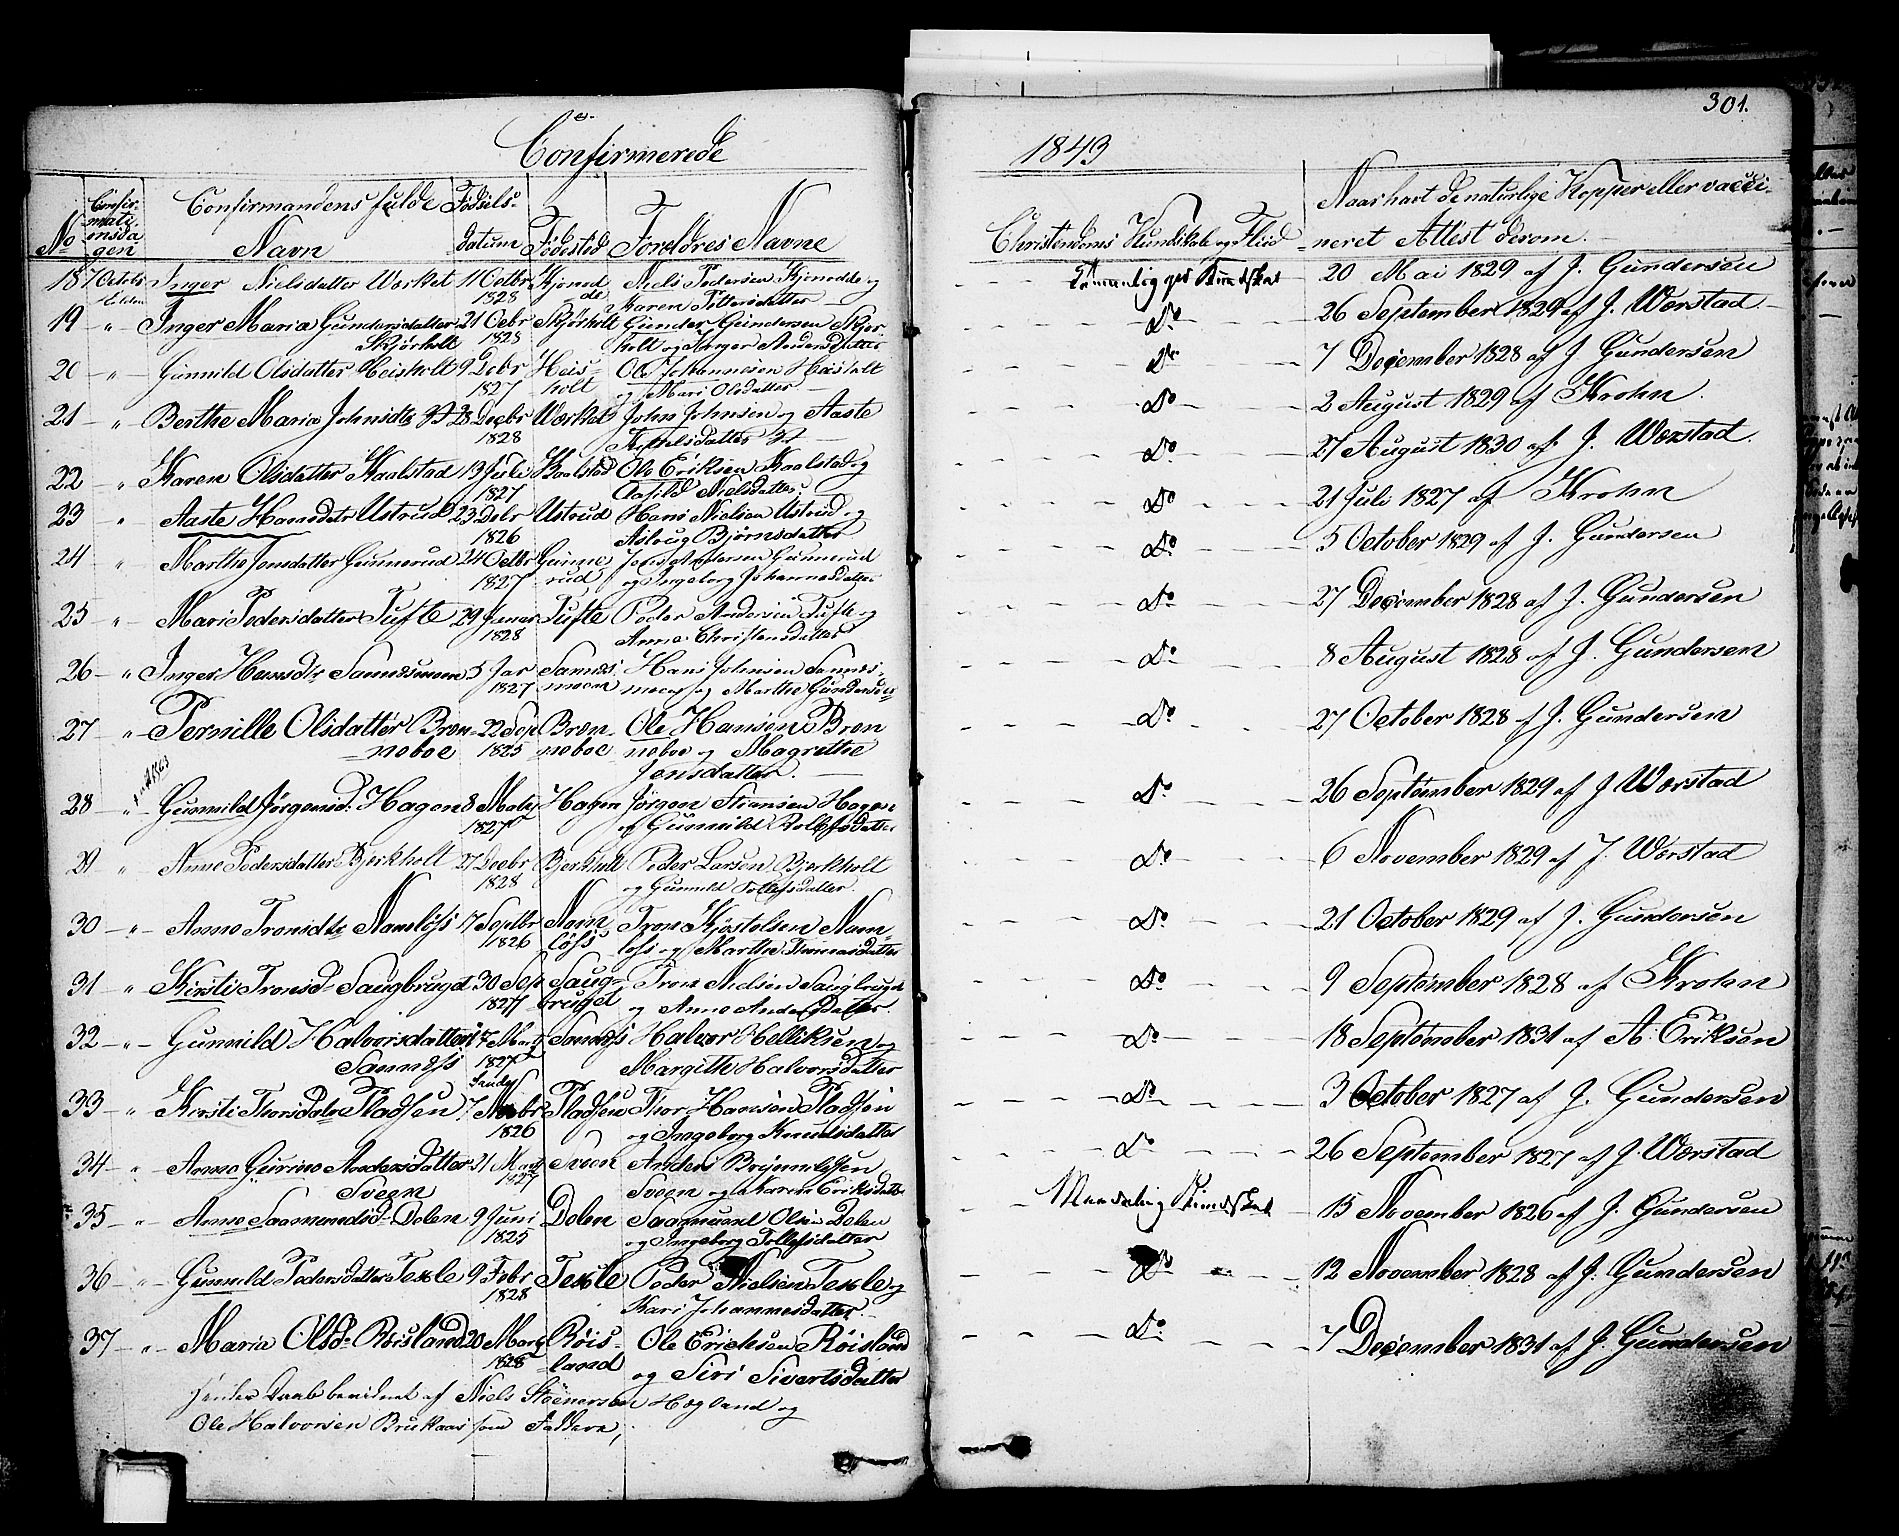 301.
Confirmerede
1843
No
Confirmationsdagen
Confirmandens fulde Navn
Fødselsdatum
Fødested
Forældres Navne
Christendoms Kundskab og Flid
Naar havt de naturlige Kopper eller vaccineret Attest derom.
18 7 October Inger Nielsdatter Værket 11 Octbr 1828 Niels Pedersen og Karen Pettersdatter Temmelig god Kundskab 20 Mai 1829 af J. Gundersen
19 - " - Inger Maria Gundersdatter Skjørholt 21 Octbr 1828 Skjørholt Gunder Gundersen Skjørholt og Inger Andersdatter Do 26 September 1829 af J. Worstad
20 - " - Gunnild Olsdatter Heisholt 9 Debr 1827 Heisholt Ole Johannesen Heisholt og Mari Olsdatter Do 7 December 1828 af J Gundersen
21 - " Berthe Maria Johnsdtr 28 Decbr 1828 Værket John Johnsen og Aaste Do 2 August 1829 af Krohn.
22 - " Karen Olsdatter Kaalstad 13 Juli 1827 Kaalstad Ole Eriksen Kaalstad og Aasild Nielsdatter. Do 27 August 1830 af J. Worstad.
23 " Aaste Hansdatr Ustrud 23 Debr 1826 Ustrud Hans Nielsen Ustrud og Aslaug Bjørnsdatter Do 21 Juli 1827 af Krohn
24 " Marthe Jensdatter Gunnerud 24 Octbr 1827 Gunnerud Jens Gunnerud og Ingeborg Johannesdatter Do 5 October 1829 af J. Gundersen
25 " Mari Pedersdatter Tufte 29 Januar 1828 Tufte Peder Andersen Tufte og Anne Christensdatter Do 27 December 1828 af J. Gundersen
26 - " Inger Hansdtr Sannesmoen 5 Jar 1827 Sannesmoen Hans Johnsen Sannesmoen og Marthe Gundersdtr Do 8 August 1828 af J. Gundersen
27 - " Pernille Olsdatter Brenneboe 22 Sep 1825 Brenneboe Ole Hansen Brenneboe og Magrethe Jensdatter. Do 27 October 1828 af J. Gundersen
28 - " - Gunnild Jørgensd. Hagen 8 1827 Hagen Jørgen Stiansen Hagen og Gunnild Rollefsdatter Do 26 September 1829 af J Worstad
29 " Anne Pedersdatter Bjerkholt 27 Decbr 1828 Bjerkholt Peder Larsen Bjerkholt og Gunnild Tollefsdatter. Do 6 November 1829 af J. Worstad
30 - " - Anne Tronsdtr Namløss 17 Septbr 1826 Namløss Tron Kjøstolsen Namløss og Marthe Thomasdatter Do 21 October 1829 af J. Gundersen
31 - " Kirsti Tronsd Saugbruget 30 Sep 1827 Saugbruget Tron Nielsen Saugbruget og Anne Andersdatter. Do 9 September 1828 af Krohn
32 - " - Gunnild Halvorsdatter Sanness 17 1827 Sanness Halvor Helliksen og Margithe Halvorsdatter Do 18 September 1831 af A. Eriksen
33 - " - Kirsti Thorsdatr Pladsen 7 Novbr 1826 Pladsen Thor Hansen Pladsen og Ingeborg Knudsdatter Do 3 October 1827 af J. Gundersen
34 - " Anne Gurine Andersdatter Sveen 31 1827 Sveen Anders Sveen og Karen Eriksdatter Do 26 September 1827 af J. Worstad
35 - " Anne Saamundsd Dolen 9 Juni 1825 Dolen Saamund Olsen Dolen og Ingeborg Tollefsdatter Maadelig Kundskab 15 November 1826 af J. Gundersen
36 - " - Gunnild Pedersdatter Texle 9 Febr 1828 Texle Peder Nielsen Texle og Kari Johannesdatter Do 12 November 1828 af J. Gundersen
37 - " - Maria Olsd Røisland 20 1828 Røisland Ole Ericksen Røisland og Siri Sivertsdatter Do 7 December 1831 af J. Gundersen
Daab bevidnet af Niels Steenersen Høgland og
Ole Halvorsen Brukaas som Faddere,